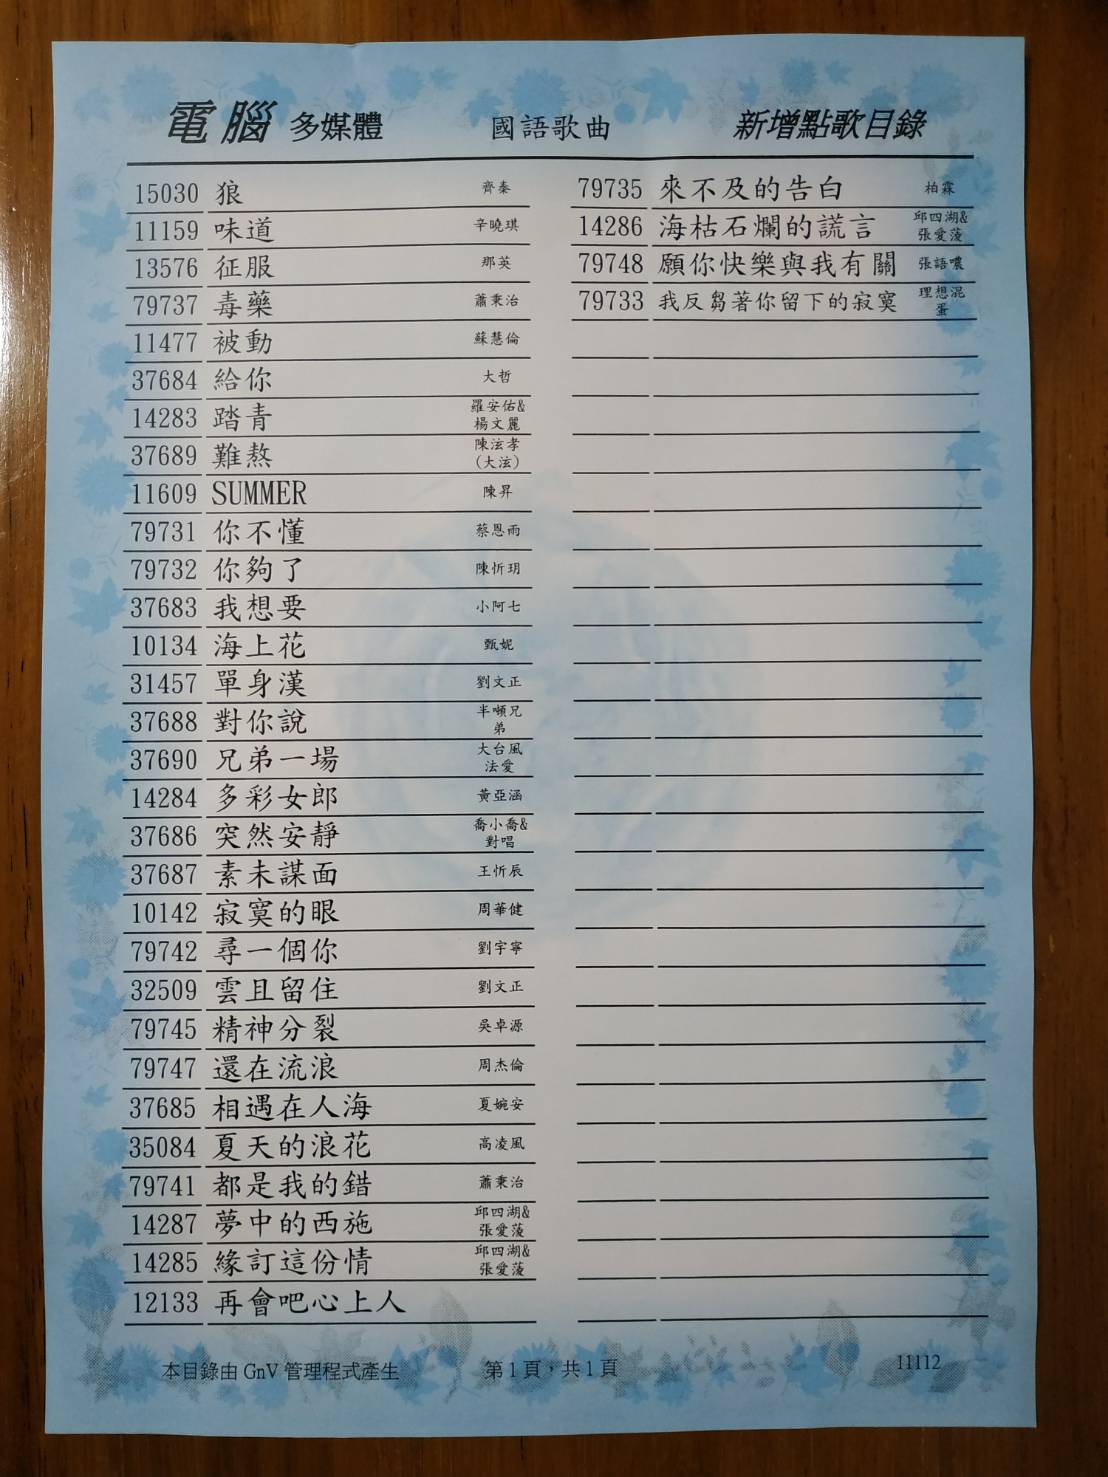 電腦 多媒體 國語歌曲 新增點歌目錄
15030 狼 齊秦
11159 味道 辛曉琪
13576 征服 那英
79737 毒藥 蕭秉治
11477 被動 蘇慧倫
37684 給你 大哲
14283 踏青 羅安佑&
楊文麗
37689 難熬 陳泫孝
(大泫)
11609 SUMMER 陳昇
79731 你不懂 蔡恩雨
79732 你夠了 陳忻玥
37683 我想要 小阿七
10134 海上花 甄妮
31457 單身漢 劉文正
37688 對你說 半噸兄
弟
37690 兄弟一場 大台風
法愛
14284 多彩女郎 黃亞涵
37686 突然安靜 喬小喬&
對唱
37687 素未謀面 王忻辰
10142 寂寞的眼 周華健
79742 尋一個你 劉宇寧
32509 雲且留住 劉文正
79745 精神分裂 吳卓源
79747 還在流浪 周杰倫
37685 相遇在人海 夏婉安
35084 夏天的浪花 高凌風
79741 都是我的錯 蕭秉治
14287 夢中的西施 邱四湖&
張愛薐
14285 緣訂這份情 邱四湖&
張愛薐
12133 再會吧心上人
79735 來不及的告白 柏霖
14286 海枯石爛的謊言 邱四湖&
張愛薐
79748 願你快樂與我有關 張語噥
79733 我反芻著你留下的寂寞 理想混
蛋
本目錄由 GnV 管理程式產生 第1頁，共1頁 11112